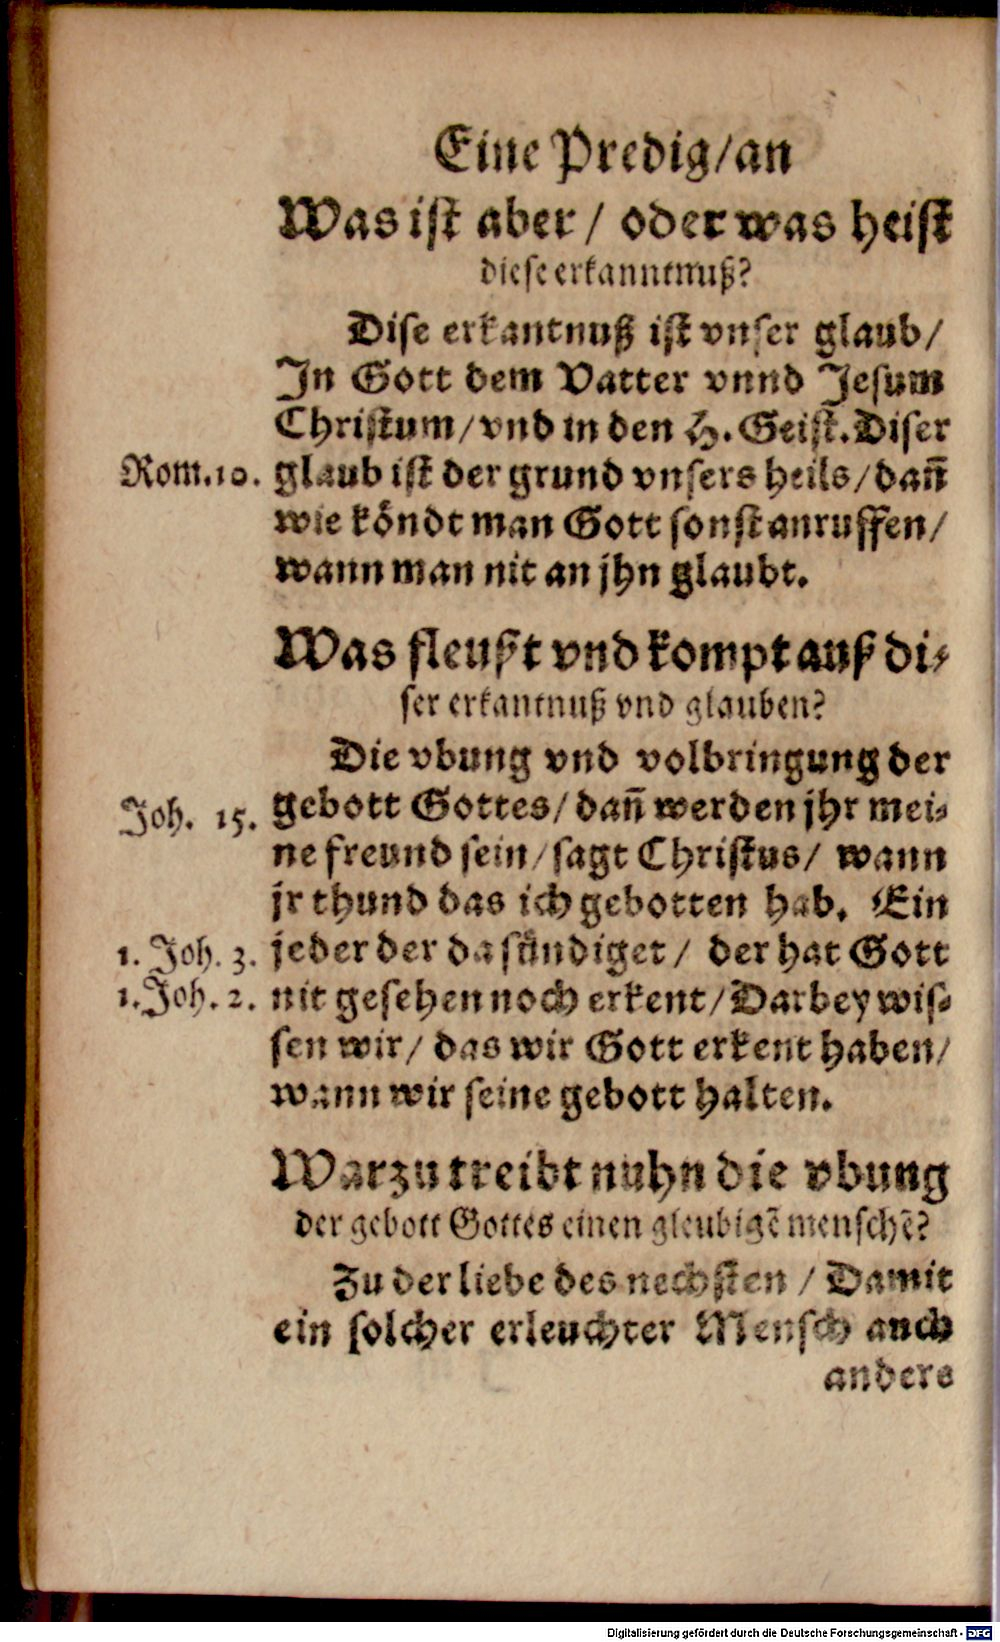 Eine Predig/an
Was ist aber / oder was heist
diese erkanntnuß?
Dise erkantnuß ist vnser glaub/
In Gott dem Vatter vnnd Jesum
Christum/vnd in den H. Geist. Diser
Rom. 10. glaub ist der grund vnsers heils/dañ
wie köndt man Gott sonst anruffen/
wann man nit an jhn glaubt.
Was fleußt vnd kompt auß di-
ser erkantnuß vnd glauben?
Die vbung vnd volbringung der
Joh. 15. gebott Gottes/dañ werden jhr mei-
ne freund sein/sagt Christus/ wann
jr thund das ich gebotten hab. Ein
1. Joh. 3. jeder der da sündiget/ der hat Gott
1. Joh. 2. nit gesehen noch erkent/Darbey wis-
sen wir/ das wir Gott erkent haben/
wann wir seine gebott halten.
Warzu treibt nuhn die vbung
der gebott Gottes einen gleubigẽ menschẽ?
Zu der liebe des nechsten / Damit
ein solcher erleuchter Mensch auch
anders
Digitalisierung gefördert durch die Deutsche Forschungsgemeinschaft - DFG